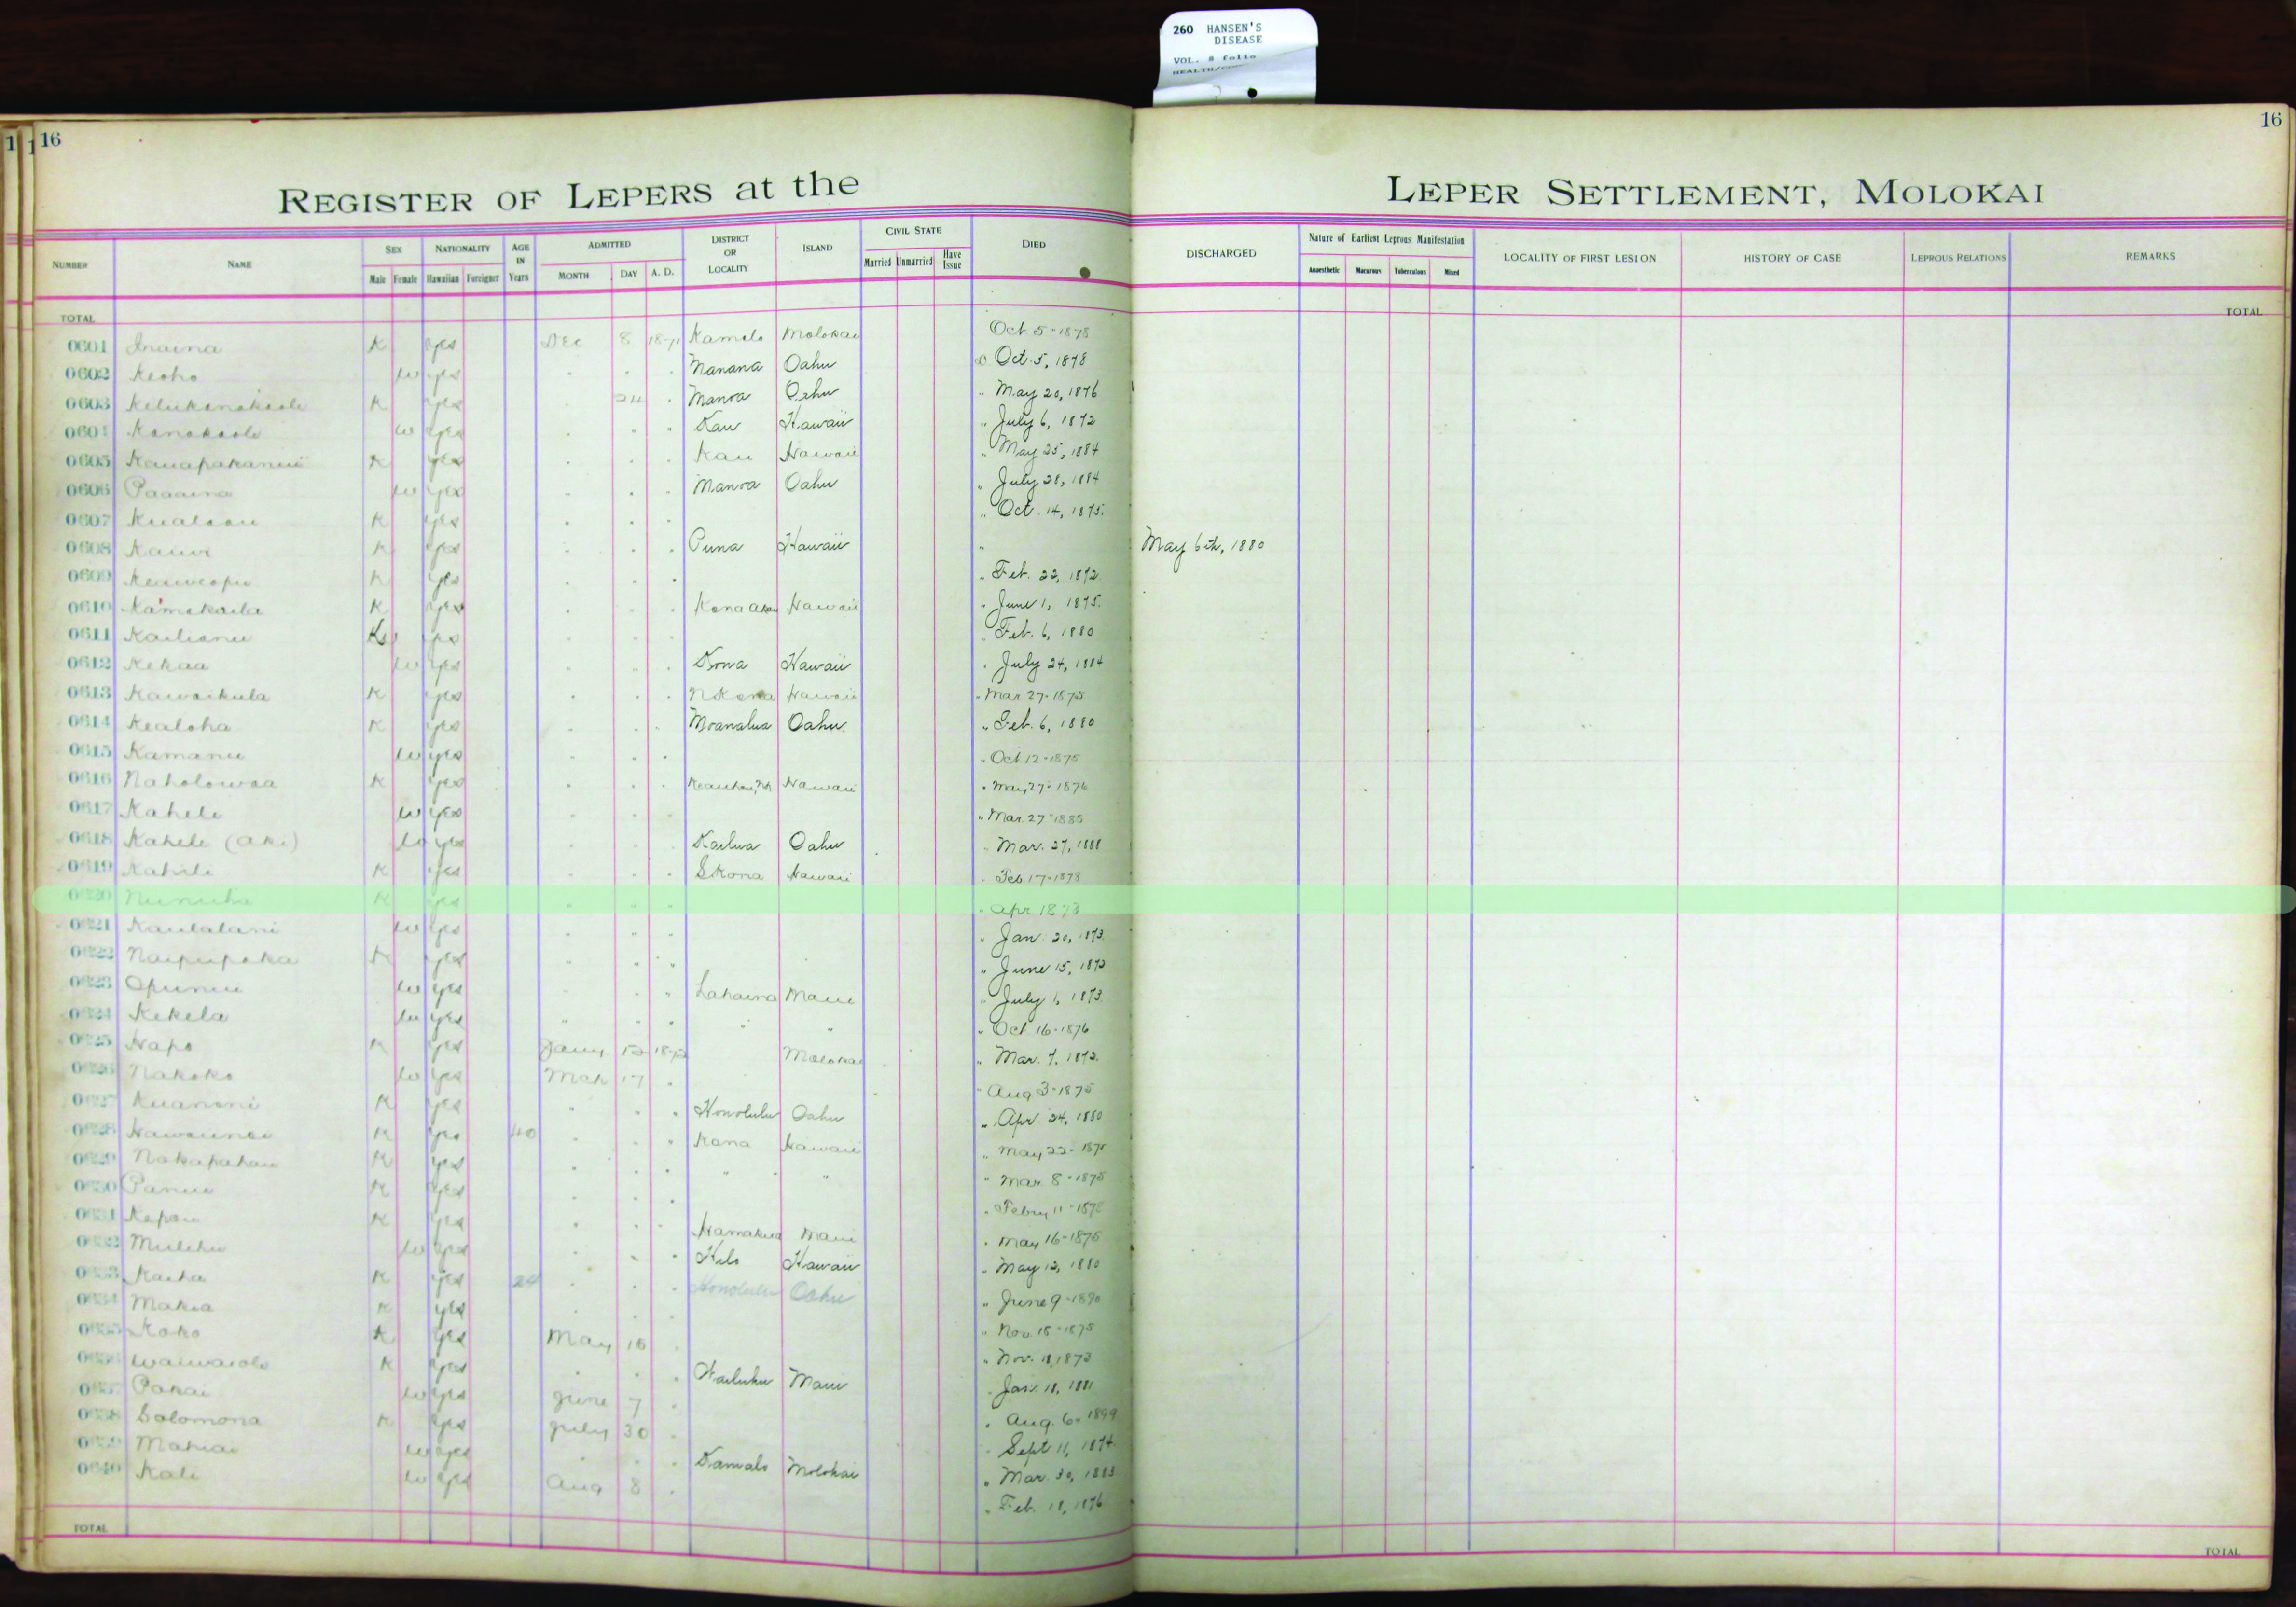 260 HANSEN'S
DISEASE
VOL. 8 folio
16
16
REGISTER OF LEPERS at the
LEPER SETTLEMENT, MOLOKAI
NUMBER NAME SEX NATIONALITY AGE IN Years ADMITTED DISTRICT OR LOCALITY ISLAND CIVIL STATE DIED DISCHARGED Nature of Earliest Leprous Manifestation LOCALITY OF FIRST LESION HISTORY OF CASE LEPROUS RELATIONS REMARKS
Male Female Hawaiian Foreigner MONTH DAY A. D. Married Unmarried Have Issue Anaesthetic Macurous Tuberculous Mixed
TOTAL TOTAL
0601 Inaina K Yes Dec 8 1871 Kamalo Molokai Oct 5-1878
0602 Keoho W Yes Manana Oahu D Oct. 5, 1878
0603 K Yes 24 Manoa Oahu " May 20, 1876
0604 Kanakaole W Yes Kau Hawaii " July 6, 1872
0605 K Yes Kau Hawaii " May 25, 1884
0606 Paaaina W Yes Manoa Oahu " July 28, 1884
0607 K Yes " Oct. 14, 1875
0608 Kauwe K Yes Puna Hawaii " May 6th, 1880
0609 Keaweopu K Yes " Feb. 22, 1872
0610 Kamakaila K Yes Kona Akau Hawaii " June 1, 1875
0611 Kailianu K Yes " Feb. 6, 1880
0612 Kekaa W Yes Kona Hawaii " July 24, 1884
0613 Kawaikula K Yes N Kona Hawaii " Mar 27-1875
0614 Kealoha K Yes Moanalua Oahu " Feb. 6, 1880
0615 Kamanu W Yes " Oct 12-1875
0616 Naholowaa K Yes Keauhou, NK Hawaii " May 27-1876
0617 Kahele W Yes " Mar. 27-1885
0618 Kahele (Aki) W Yes Kailua Oahu " Mar. 27, 1888
0619 Kahili K Yes S Kona Hawaii " Feb. 17-1878
0620 Nunuha K Yes " Apr 1873
0621 Kaulalani W Yes " Jan. 20, 1873
0622 Naipupaka K Yes " June 15, 1873
0623 Opunui W Yes Lahaina Maui " July 1, 1873
0624 Kekela W Yes " " " Oct 16-1876
0625 Hapo K Yes Jany 1872 Molokai " Mar. 7, 1872
0626 Nakoko W Yes Mch 17 " Aug 3-1875
0627 Kuanoni K Yes Honolulu Oahu " Apr. 24, 1880
0628 K Yes 40 Kona Hawaii " May 22-1875
0629 Nakapahau K Yes " " " Mar. 8-1875
0630 Panui K Yes " Febry 11-
0631 Kapau K Yes Hamakua Maui " May 16-1875
0632 Mulehu W Yes Hilo Hawaii " May 12, 1880
0633 Kaiha K Yes 24 Honolulu Oahu " June 9-1890
0634 Makia K Yes " Nov. 18-1875
0635 Koko K Yes May 15 " Nov. 11, 1873
0636 K Yes Wailuku Maui " Jan. 18, 1881
0637 Pakai W Yes June 7 " Aug. 6, 1899
0638 Solomona K Yes July 30 " Sept 11, 1874
0639 Mahiai W Yes Kamalo Molokai " Mar. 30, 1883
0640 Kali W Yes Aug 8 " Feb. 18, 1876
TOTAL TOTAL